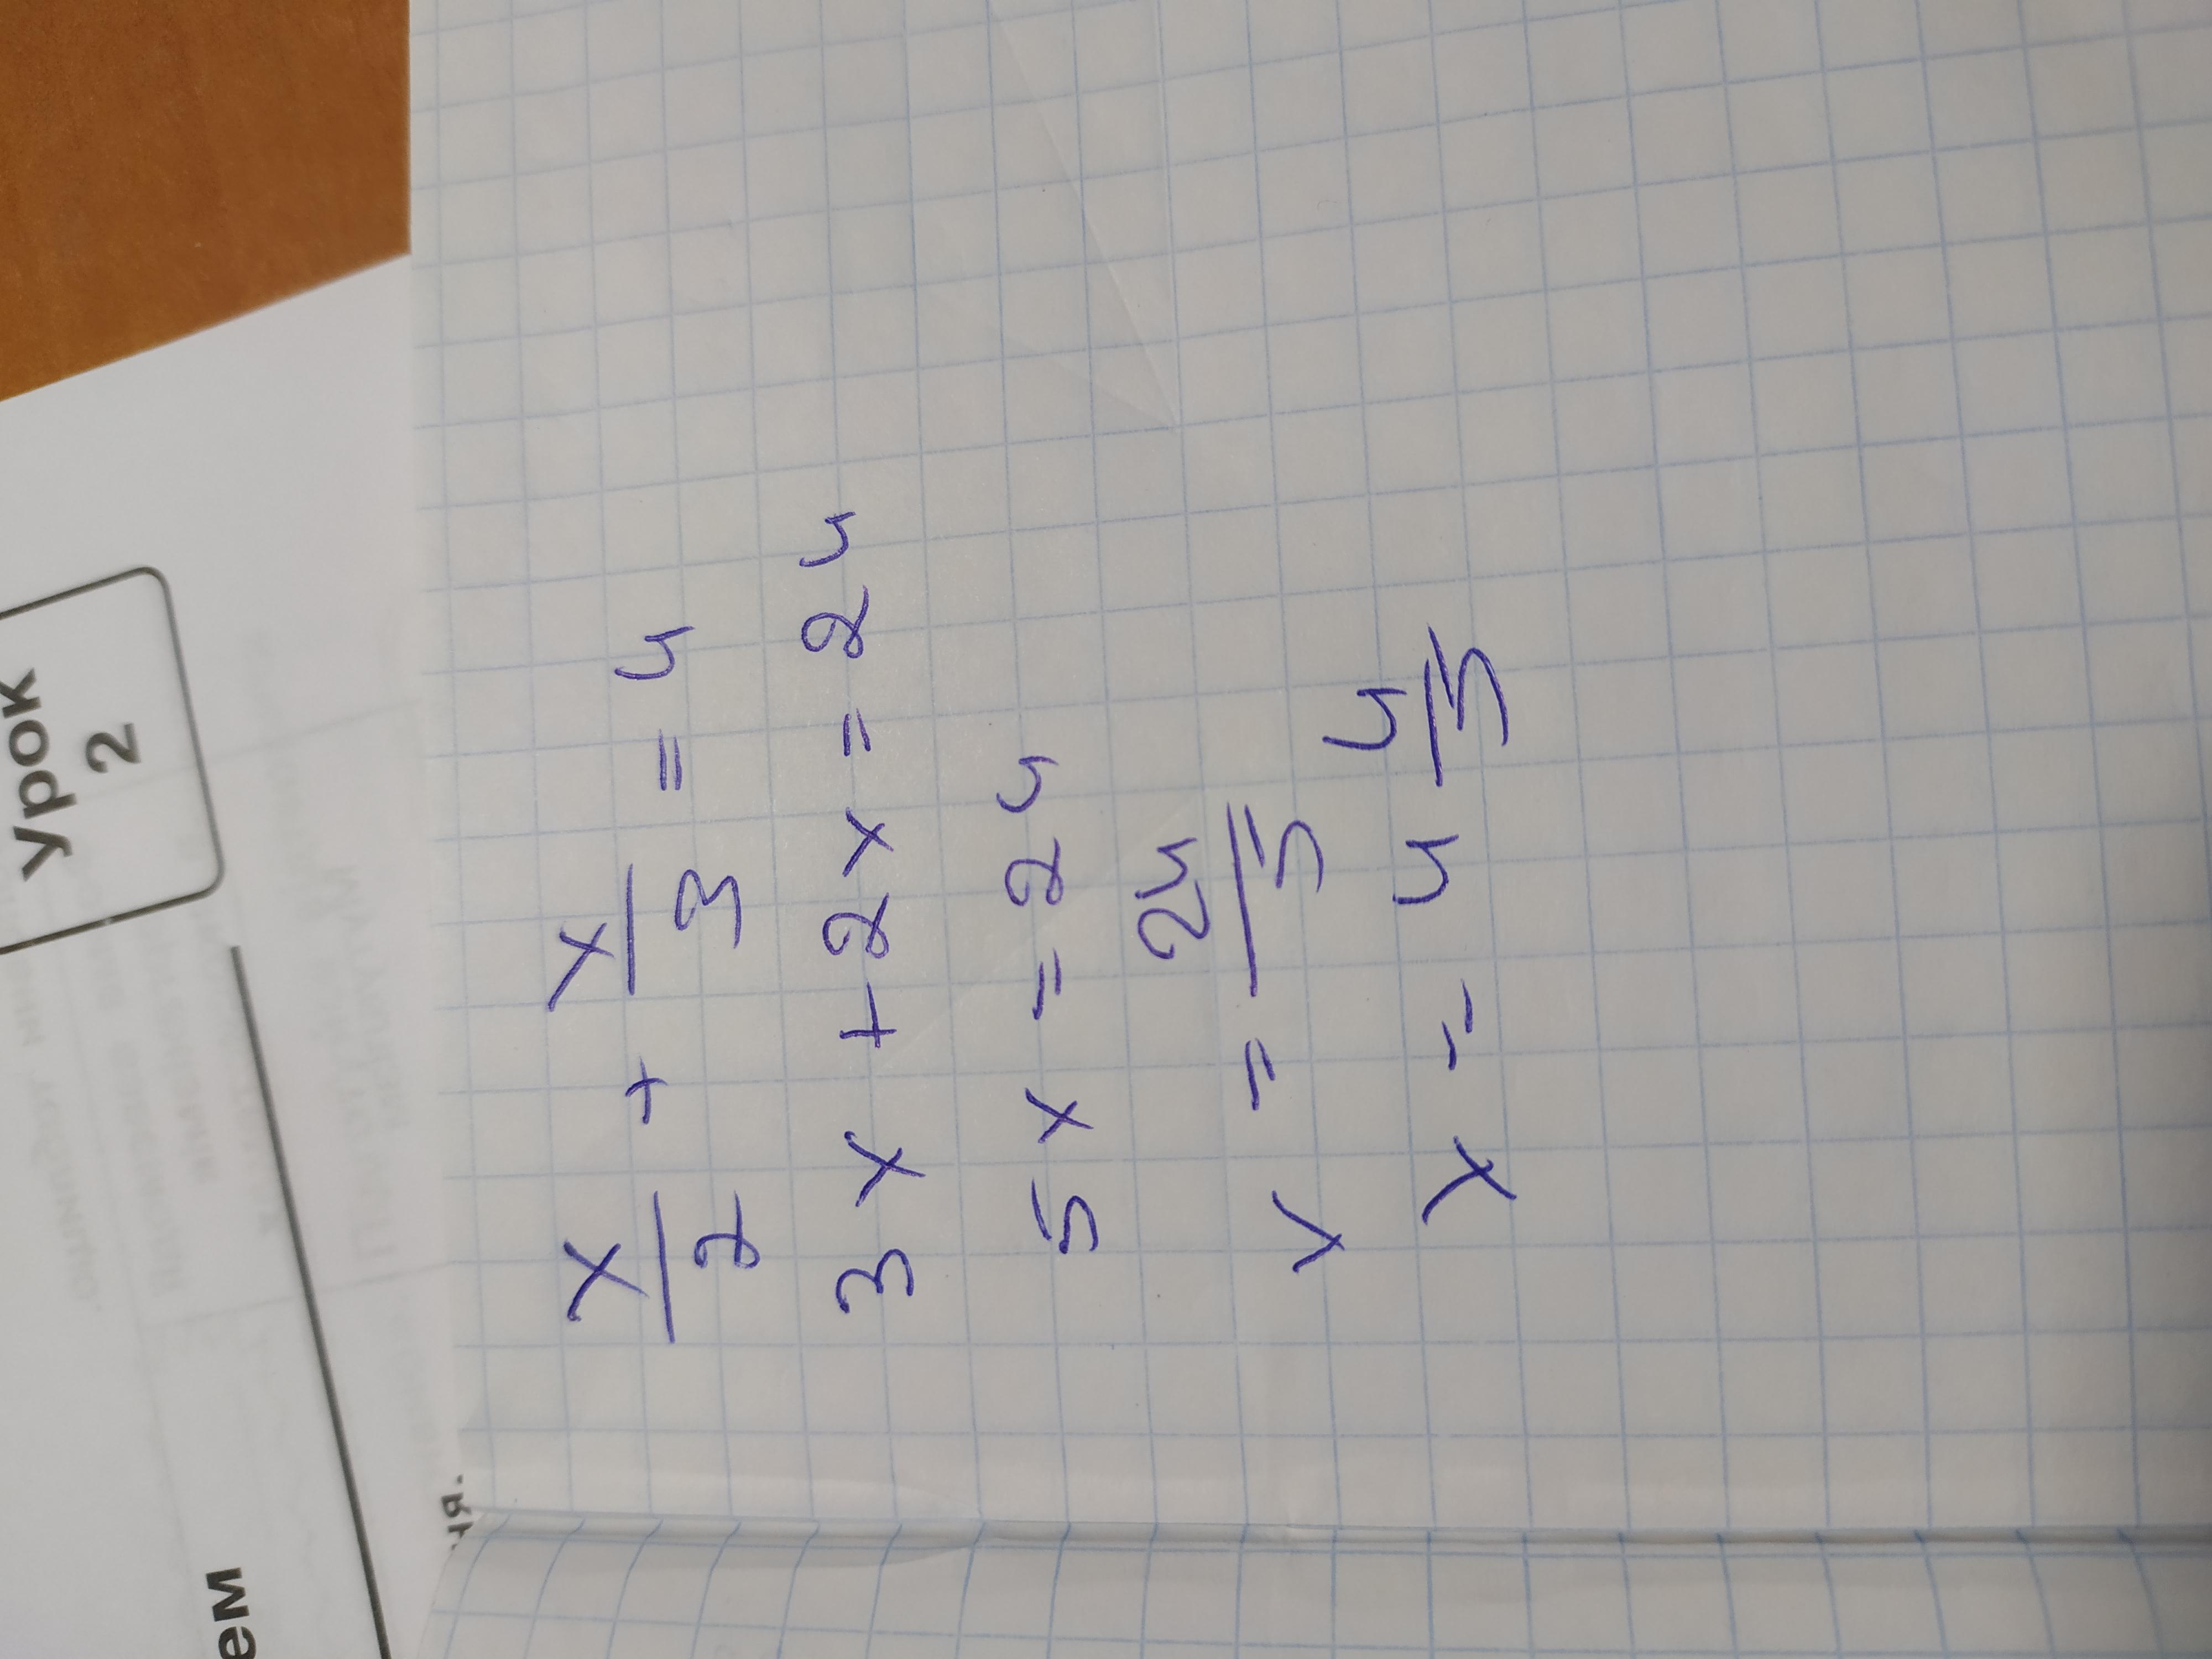 Урок
2
ем
ня.
x/2 + x/3 = 4
3x + 2x = 24
5x = 24
x = 24/5
x = 4 4/5